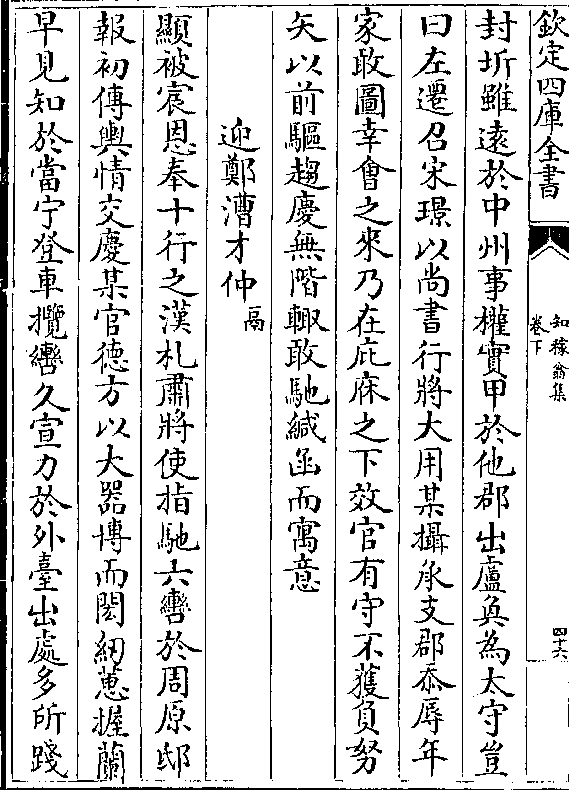 欽定四庫全書
知稼翁集
卷下
四十六
封圻雖遠於中州事權實甲於他郡出盧奐為太守豈
曰左遷召宋璟以尚書行將大用某攝承支郡忝辱年
家敢圖幸會之來乃在庇庥之下效官有守不獲負弩
矢以前驅趨慶無階輙敢馳緘函而寓意
迎鄭漕才仲鬲
顯被宸恩奉十行之漢札肅將使指馳六轡於周原邸
報初傳輿情交慶某官德方以大器博而閎紉蕙握蘭
早見知於當宁登車攬轡久宣力於外臺出處多所踐